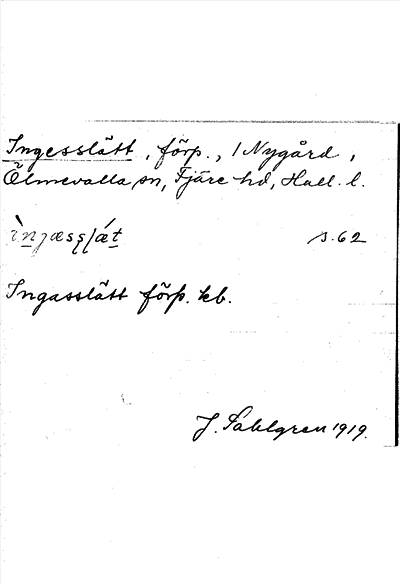 Ingesslätt, förp., 1 Nygård,
Ölmevalla sn, Fjäre hd, Hall. l.
s. 62
Ingasslätt förp. kb.
J. Sahlgren 1919.